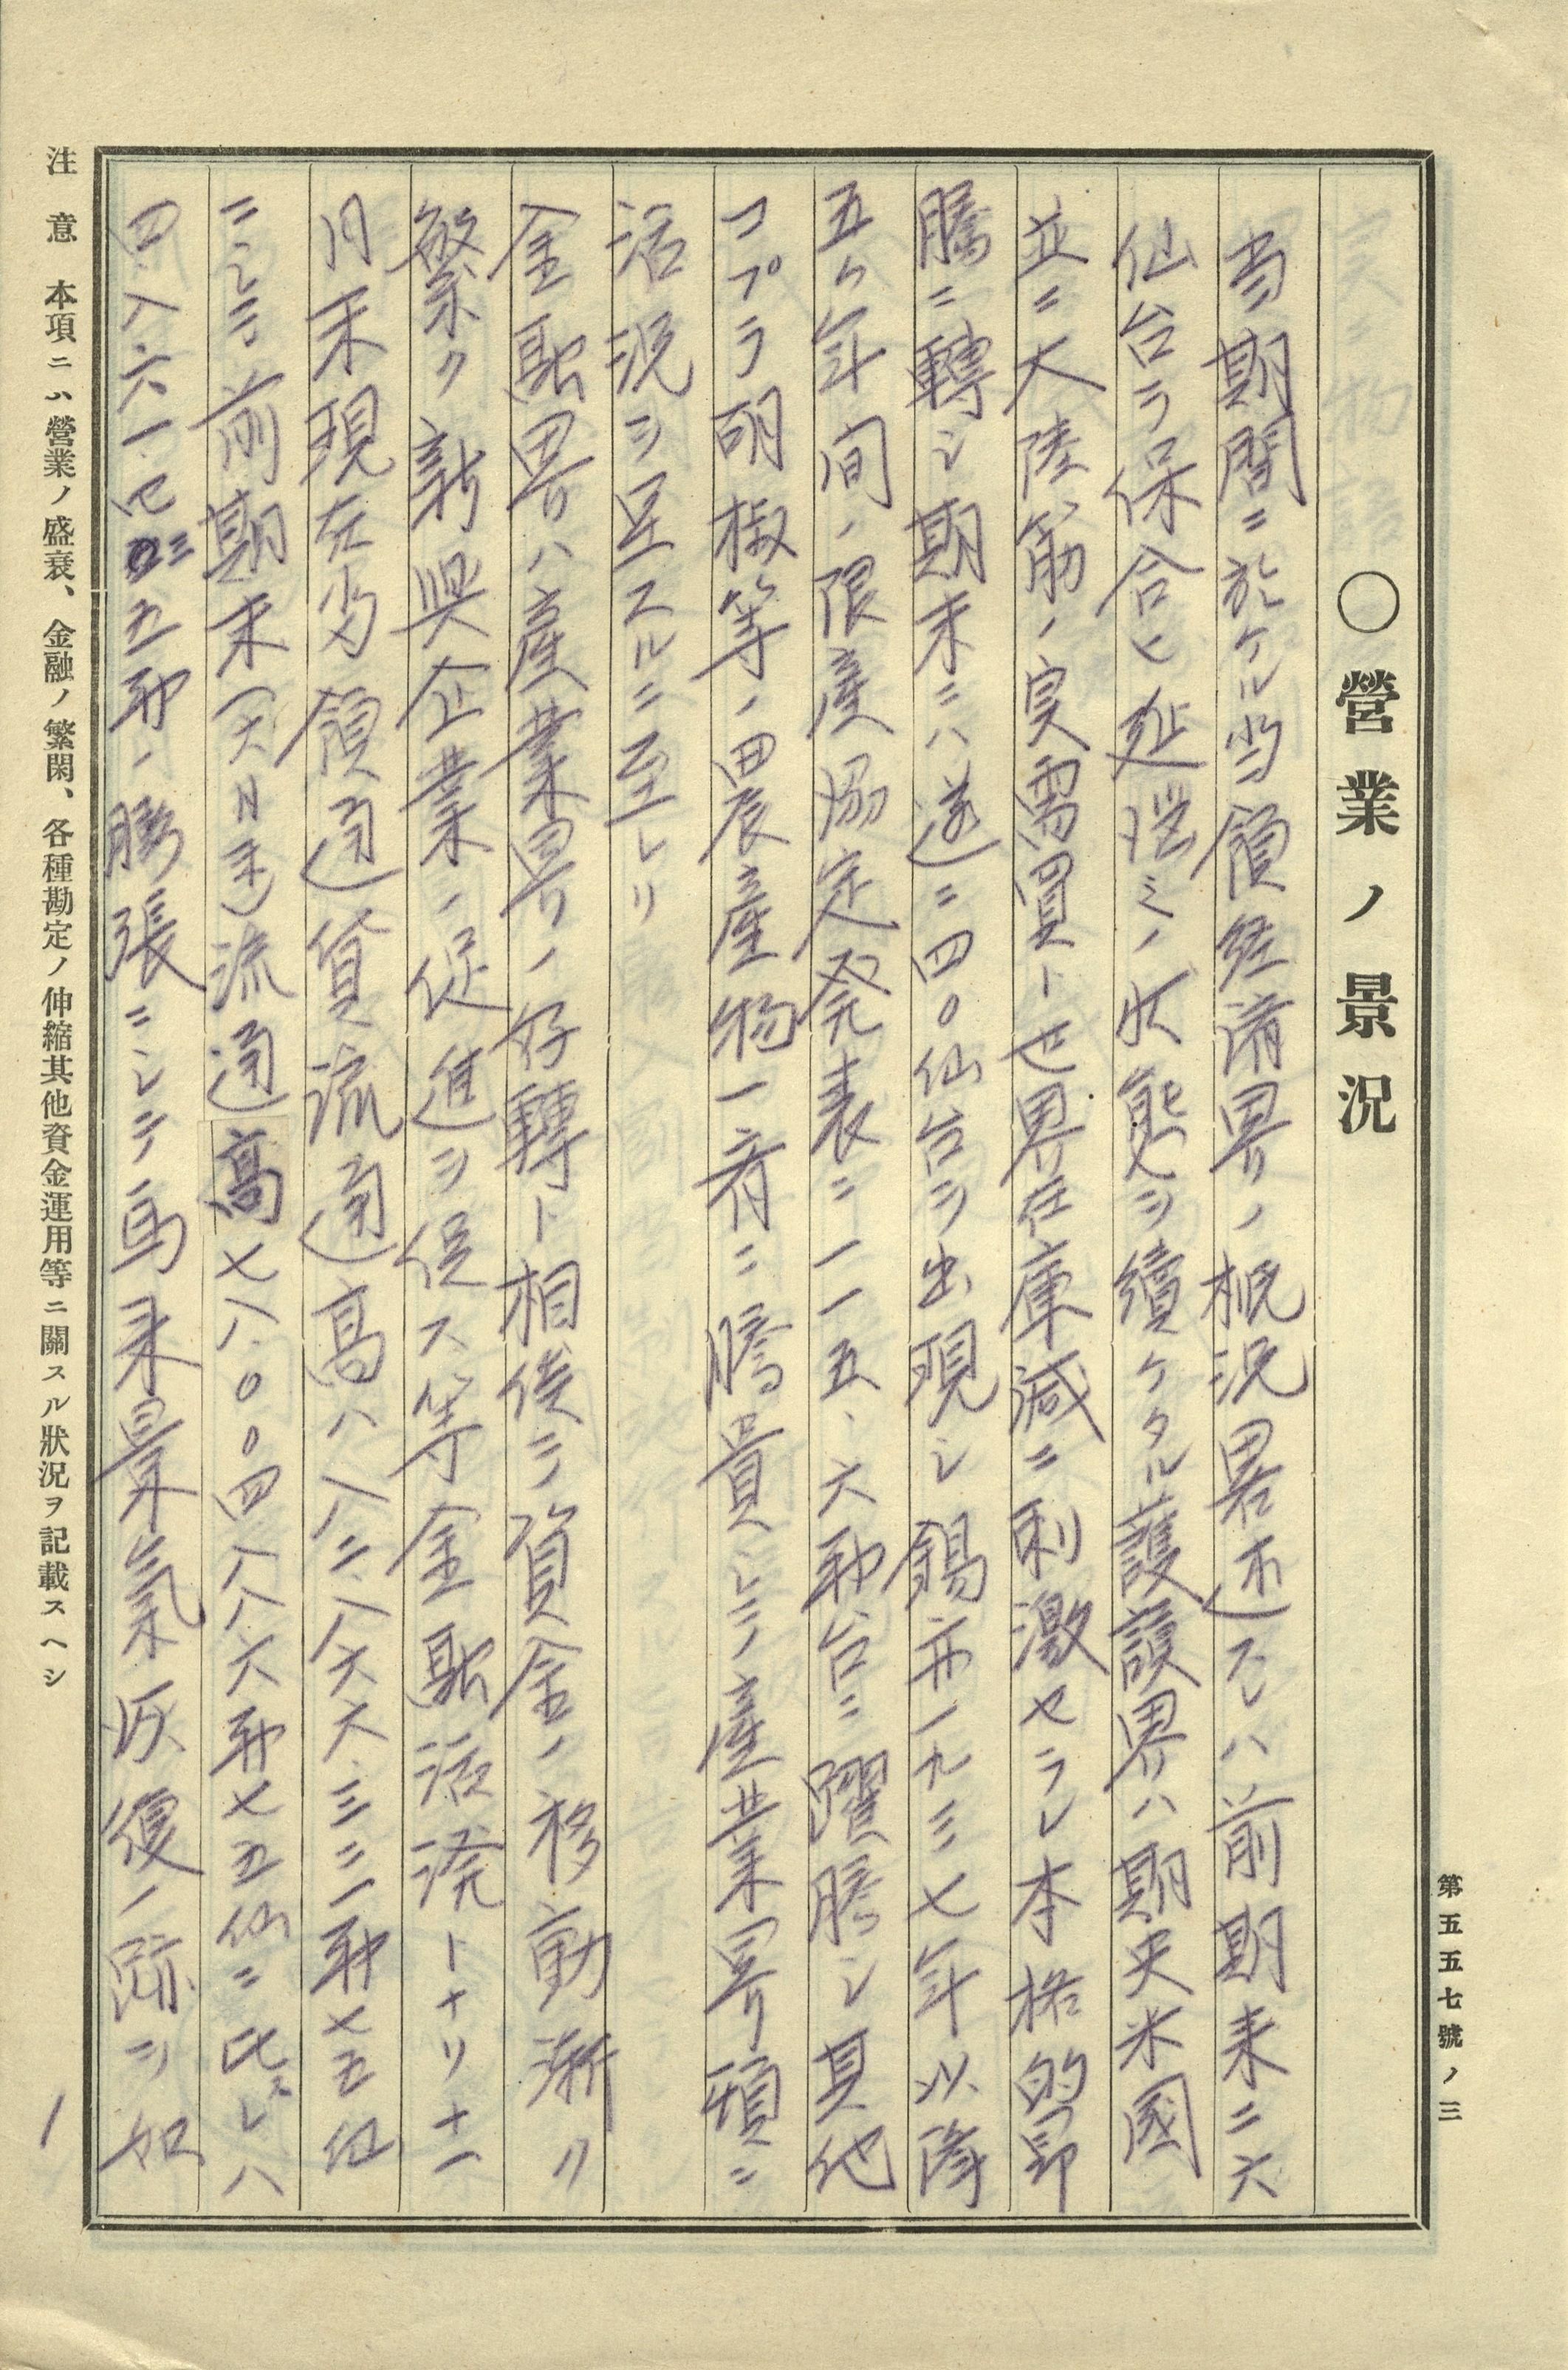 第五五七號ノ三
〇營業ノ景況
当期間ニ於ケル当領経済界ノ概況畧述スレハ前期末二六
仙台ヲ保合ヒ延悩ミノ状態ヲ續ケタル護謨界ハ期央米國
並ニ大陸筋ノ実需買ト世界在庫減ニ刺激セラレ本格的昂
騰ニ轉シ期末ニハ遂ニ四〇仙台ヲ出現シ錫亦一九三七年以降
五ケ年間ノ限産協定発表ニ一一五、六弗台ニ躍騰シ其他
コプラ胡椒等ノ農産物一斉ニ騰貴シテ産業界頓ニ
活況ヲ呈スルニ至レリ
金融界ハ産業界ノ好轉ト相俟ニテ資金ノ移動漸ク
繁ク新興企業ノ促進ヲ促ス等金融活溌トナリ十一
月末現在当領通貨流通高ハ八二、八六六、三二一弗七五仙
ニシテ前期末(六月末)流通高七八、〇〇四、八八六弗七五仙ニ比スレハ
四、八六一、四三五弗ノ膨張ニシテ馬来景氣恢復ノ跡ヲ如
注意 本項ニハ營業ノ盛衰、金融ノ繁閑、各種勘定ノ伸縮其他資金運用等ニ關スル狀況ヲ記載スヘシ
1